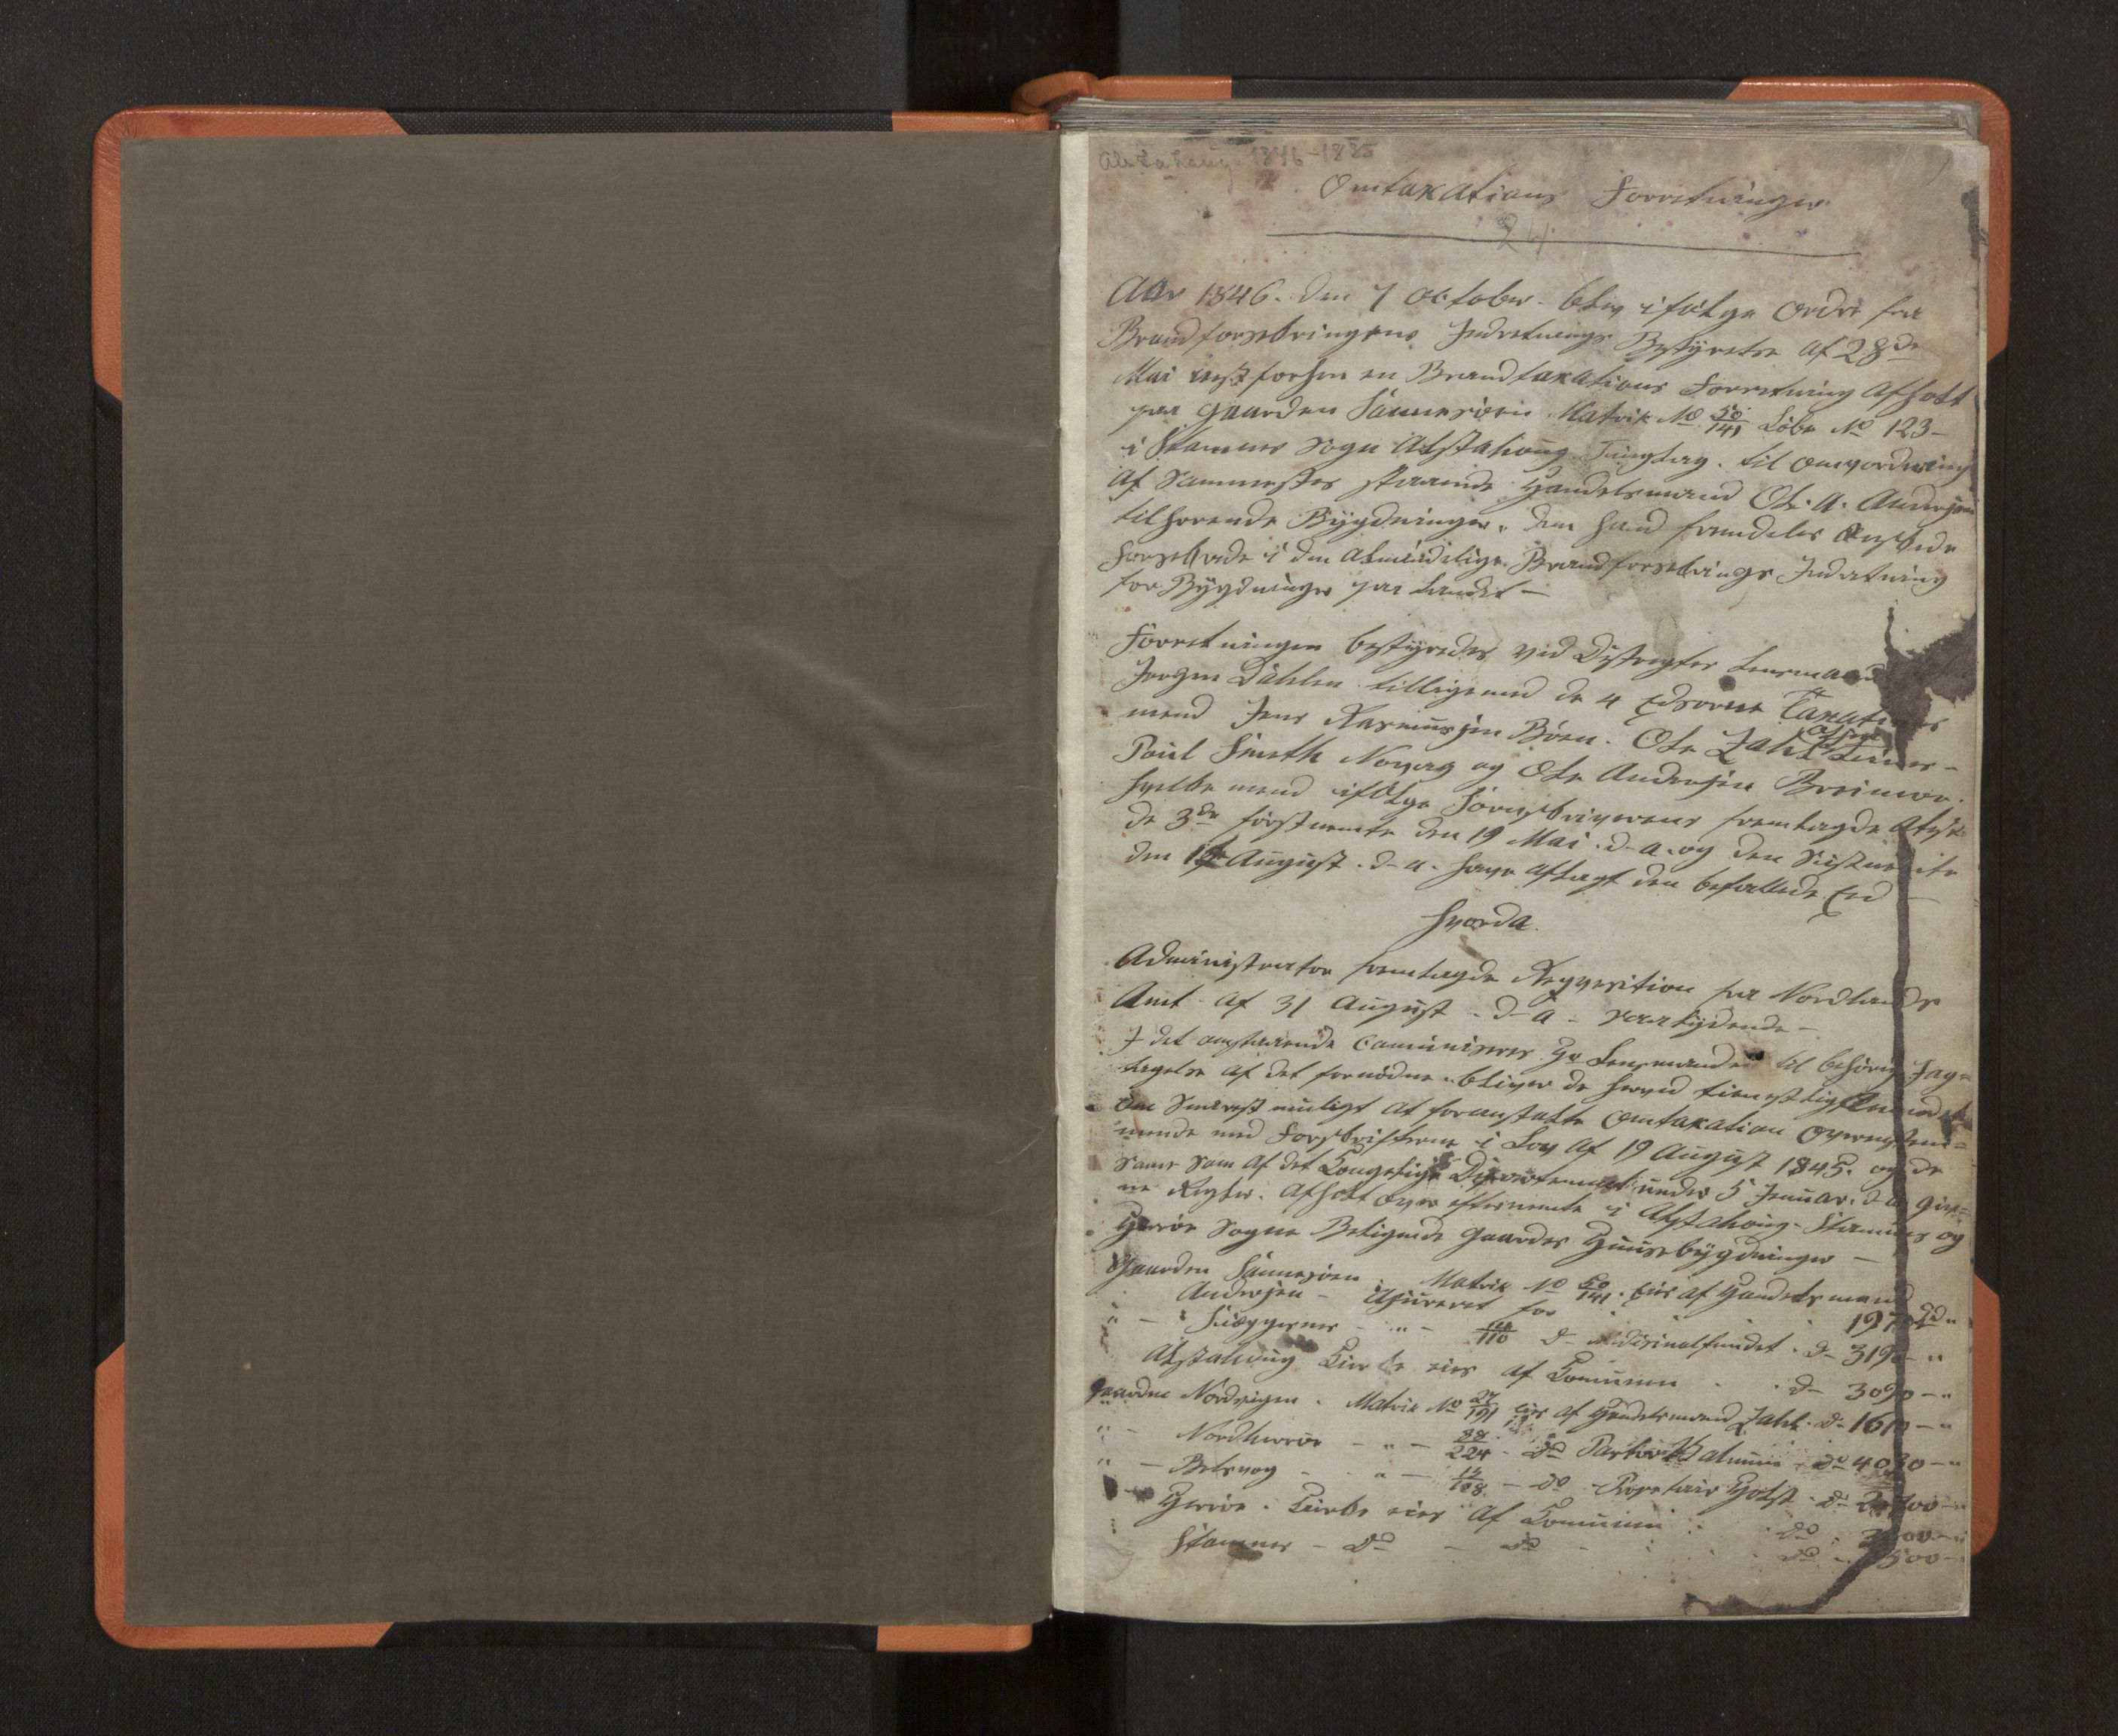 Alstahaug 1846-1885
Omtaxations Forretninger
24
Aar 1846. den 7 October. blev ifølge Ordre fra
Brandforsekringens Indretnings Bestÿrelse af 28de
Mai sidst forhen en Brandtaxations Forretning Afholt
paa Gaarden Sannesøen Matrik No 50/141 Løbe No 123-
i Stamnes Sogn Alstahoug Tinglag. til Omvordering
Af Sammestes staaende Handelsmand Ole. A. Andersen
tilhørende Bÿgdninger. dem hand fremdeles
forsekrede i den Almindelige Brandforsekrings Indretning
for Bÿgdninger paa Landet -
Forretningen bestÿredes ved Distrigtes Lensmand
Jørgen Dahlen tilligemed de 4 Edsorne Taxations
mend Jens Rasmusjen Bøen. Ole Zahl
Poul Smeth Novag og Ole Andersen Breimoe.
hvilke mend ifølge Sorenskriverens fremlagde Atest
de 3de førstnemte den 19 Mai. d-a. og den Sistnemte
den August. d-a. have aflagt den befallede Eed
hvorda
Administrator fremlagde Reqvesition fra Nordlands
Amt. Af 31 August. d-a- saalÿdende -
I det omstaaende Comuniseres Hr Lensmanden til behørig Jag=
tagelse af det fornødne. bliver de herved tienstligst anmodet
om Snarest muligt at foranstalte Omtaxation Overenstem=
mende med Forskrifterne i Lov Af 19 August 1845. og de
Same Som af det Kongelige Departement under 5 Januar. d.a. giv=
ne Regler. Afholt over efternemte i Alstahoug- Stamnes og
Herrøe Sogne Beligende Gaardes Huusebÿgdninger -
Gaarden Sannesøen Matrik No 50/141. Eies af Handelsmand
Andersen - Asureret for 1970 Sd "
" - Skeggesnes - " - /110 d- Medisinalfondet. d- 3190 - "
Alstahoug Kirke eies af Comunen . . d- 3090 - "
Gaarden Nordvigen. Matrik No 27/191 Eies af Handelsmand Zahl. d- 1610 - "
" - Nordherrøe - " - 88/224 - do Pastor do 4030 - "
" - Belsvog - " - 15/108 - do - Proprietair Holst. d- 700 - "
Herrøe. Kirke eies Af Comunen . do 00 - "
Stamnes - do - do - . . . do - 500 -